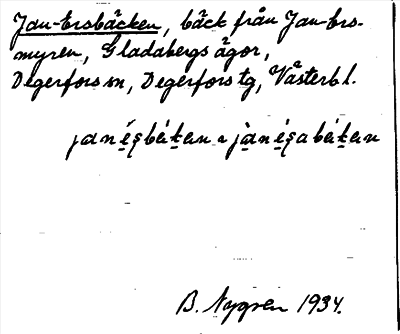 Jan-Ersbäcken, bäck från Jan-Ers-
myren, Gladabergs ägor,
Degerfors sn, Degerfors tg, Västerb.l.
B. Nygren 1934.